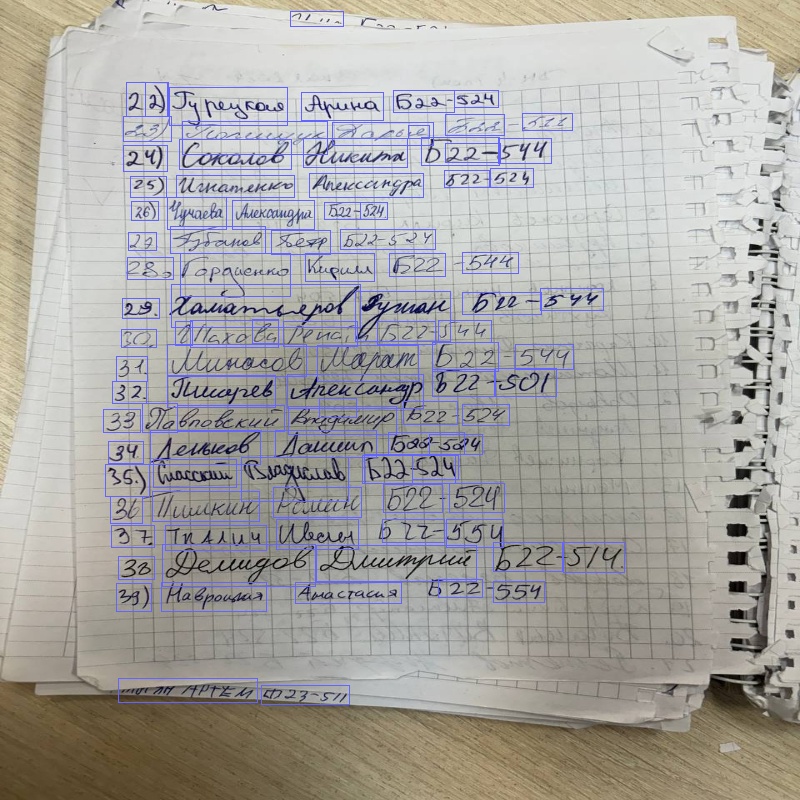 22) Гурецкая Арина Б22-524
23) Дарья Б22-511
24) Соколов Никита Б22-544
25) Игнатенко Александра Б22-524
26) Чучаева Александра Б22-524
27 Урбанов Петр Б22-524
28. Гордиенко Кирилл Б22-544
29. Хаматьяров Рушан Б22-544
30. Шахова Рената Б22-544
31. Минасов Марат Б22-544
32. Писарев Александр Б22-501
33 Павловский Владимир Б22-524
34 Леньков Даниил Б22-524
35.) Спасский Владислав Б22-524
36 Пимкин Роман Б22-524
37. Ткалич Иван Б22-554
38 Демидов Дмитрий Б22-514.
39) Навроцкая Анастасия Б22-554
АРТЕМ Б23-511